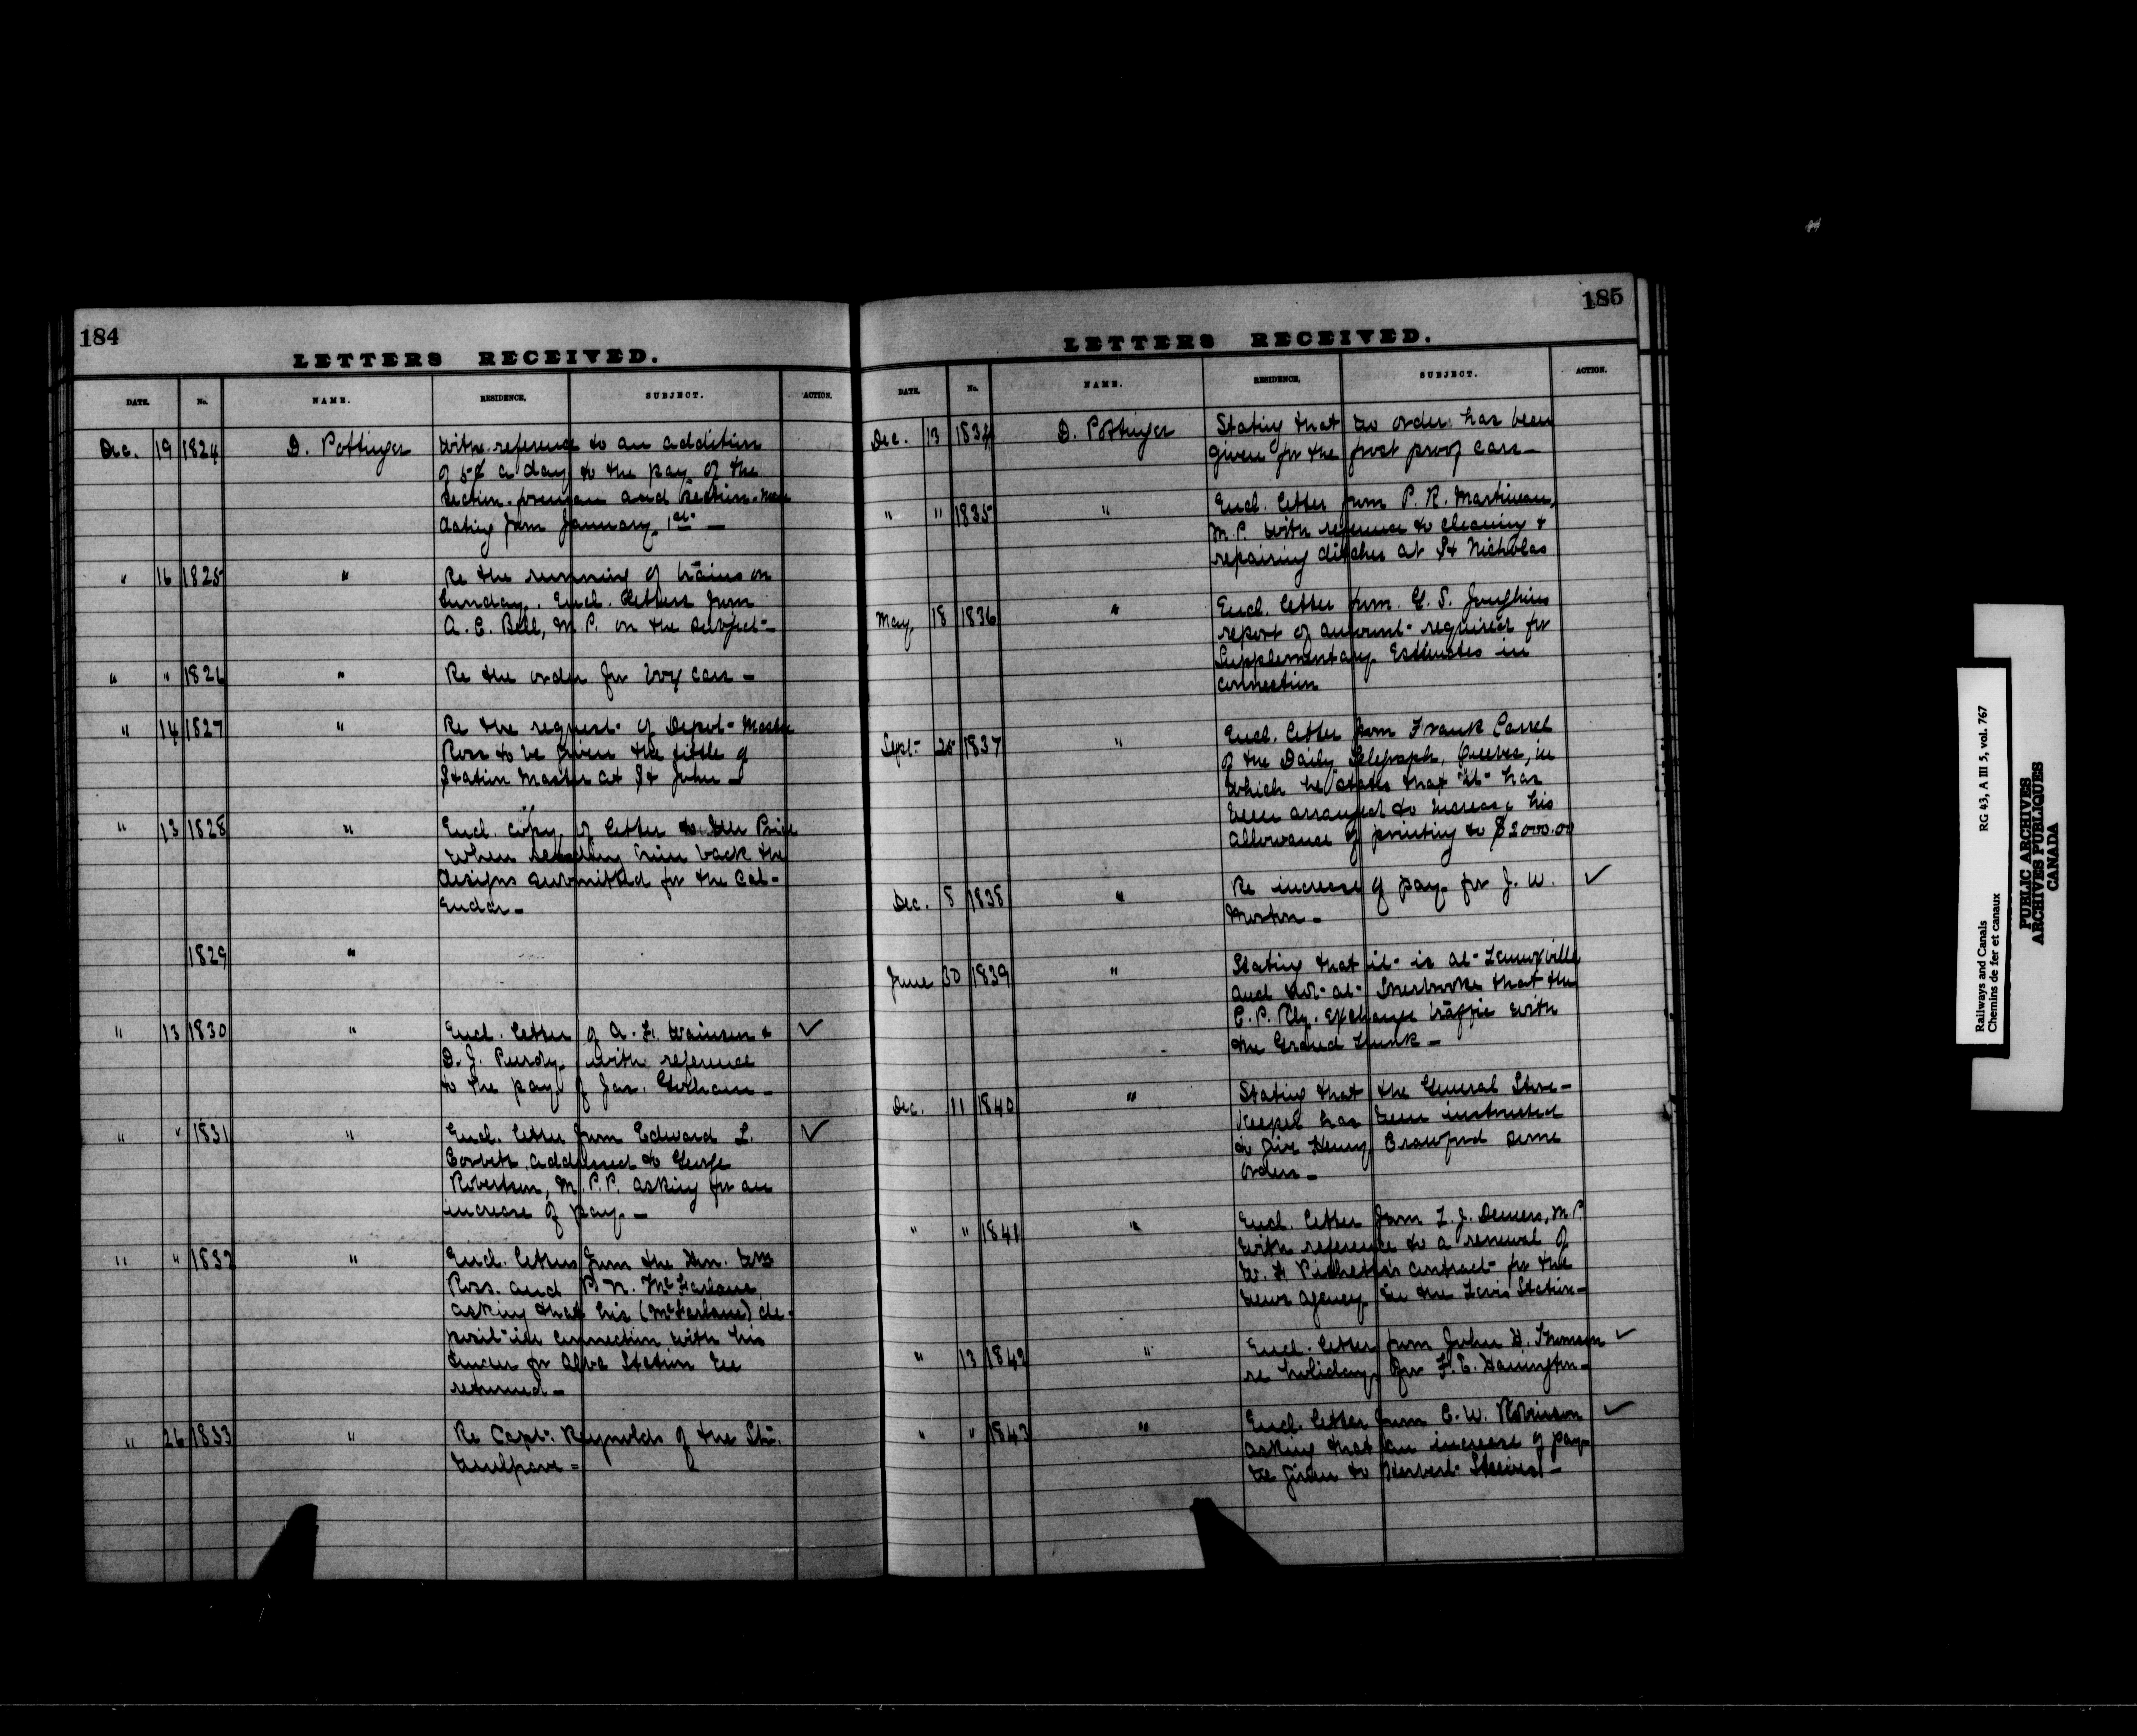 184
LETTERS RECEIVED.
DATE. No. NAME. RESIDENCE. SUBJECT. ACTION.
Dec. 19 1824 D. Pottinger With reference to an addition
of 5¢ a day to the pay of the
Section-foreman and Section-men
dating from January 1st. —
" 16 1825 " Re the running of trains on
Sunday. Encl. letters from
A. C. Bell, M.P. on the subject—
" " 1826 " Re the order for box cars —
" 14 1827 " Re the request of Depot-Master
Ross to be given the title of
Station Master at St John —
" 13 1828 " Encl. copy of letter to Mr Price
when sending him back the
designs submitted for the Cal-
endar —
1829 "
" 13 1830 " Encl. letter of A. H. &
D. J. Purdy, with reference
to the pay of Jas. —
" " 1831 " Encl. letter from Edward L.
Corbett addressed to George
Robertson, M.P.P. asking for an
increase of pay. —
" " 1832 " Encl. letters from the Hon. Wm
Ross and P. N. McFarlane,
asking that his (McFarlane) de-
posit in connection with his
tender for Alba Station be
returned —
" 26 1833 " Re Capt. Reynolds of the Str.
Mulgrave =
185
LETTERS RECEIVED.
DATE. No. NAME. RESIDENCE. SUBJECT. ACTION.
Dec. 13 1834 D. Pottinger Stating that no order has been
given for the frost proof cars —
" " 1835 " Encl. letter from P. R. Martineau,
M.P. with reference to cleaning &
repairing ditches at St Nicholas
May 18 1836 " Encl. letter from G. S. Joughins
report of amount required for
Supplementary Estimates in
connection
Sept. 25 1837 " Encl. letter from Frank Carrel
of the Daily Telegraph, Quebec, in
which he states that it has
been arranged to increase his
allowance of printing to $2000.00
Dec. 8 1838 " Re increase of pay for J. W.
Morton —
June 30 1839 " Stating that it is at Lennoxville
and not at Sherbrooke that the
C. P. Rly. exchange traffic with
the Grand Trunk —
Dec. 11 1840 " Stating that the General Store-
keeper has been instructed
to give Henry Crawford some
orders —
" " 1841 " Encl. letter from L. J. Demers, M.P.
with reference to a renewal of
W. H. contract for the
news agency in the Levis Station —
" 13 1842 " Encl. letter from John H. Thomson
re holiday for F. E. Hanington —
" " 1843 " Encl. letter from C. W. Robinson
asking that an increase of pay
be given to Herbert Steeves —
Railways and Canals RG 43, A III 5, vol. 767
Chemins de fer et canaux
PUBLIC ARCHIVES
ARCHIVES PUBLIQUES
CANADA